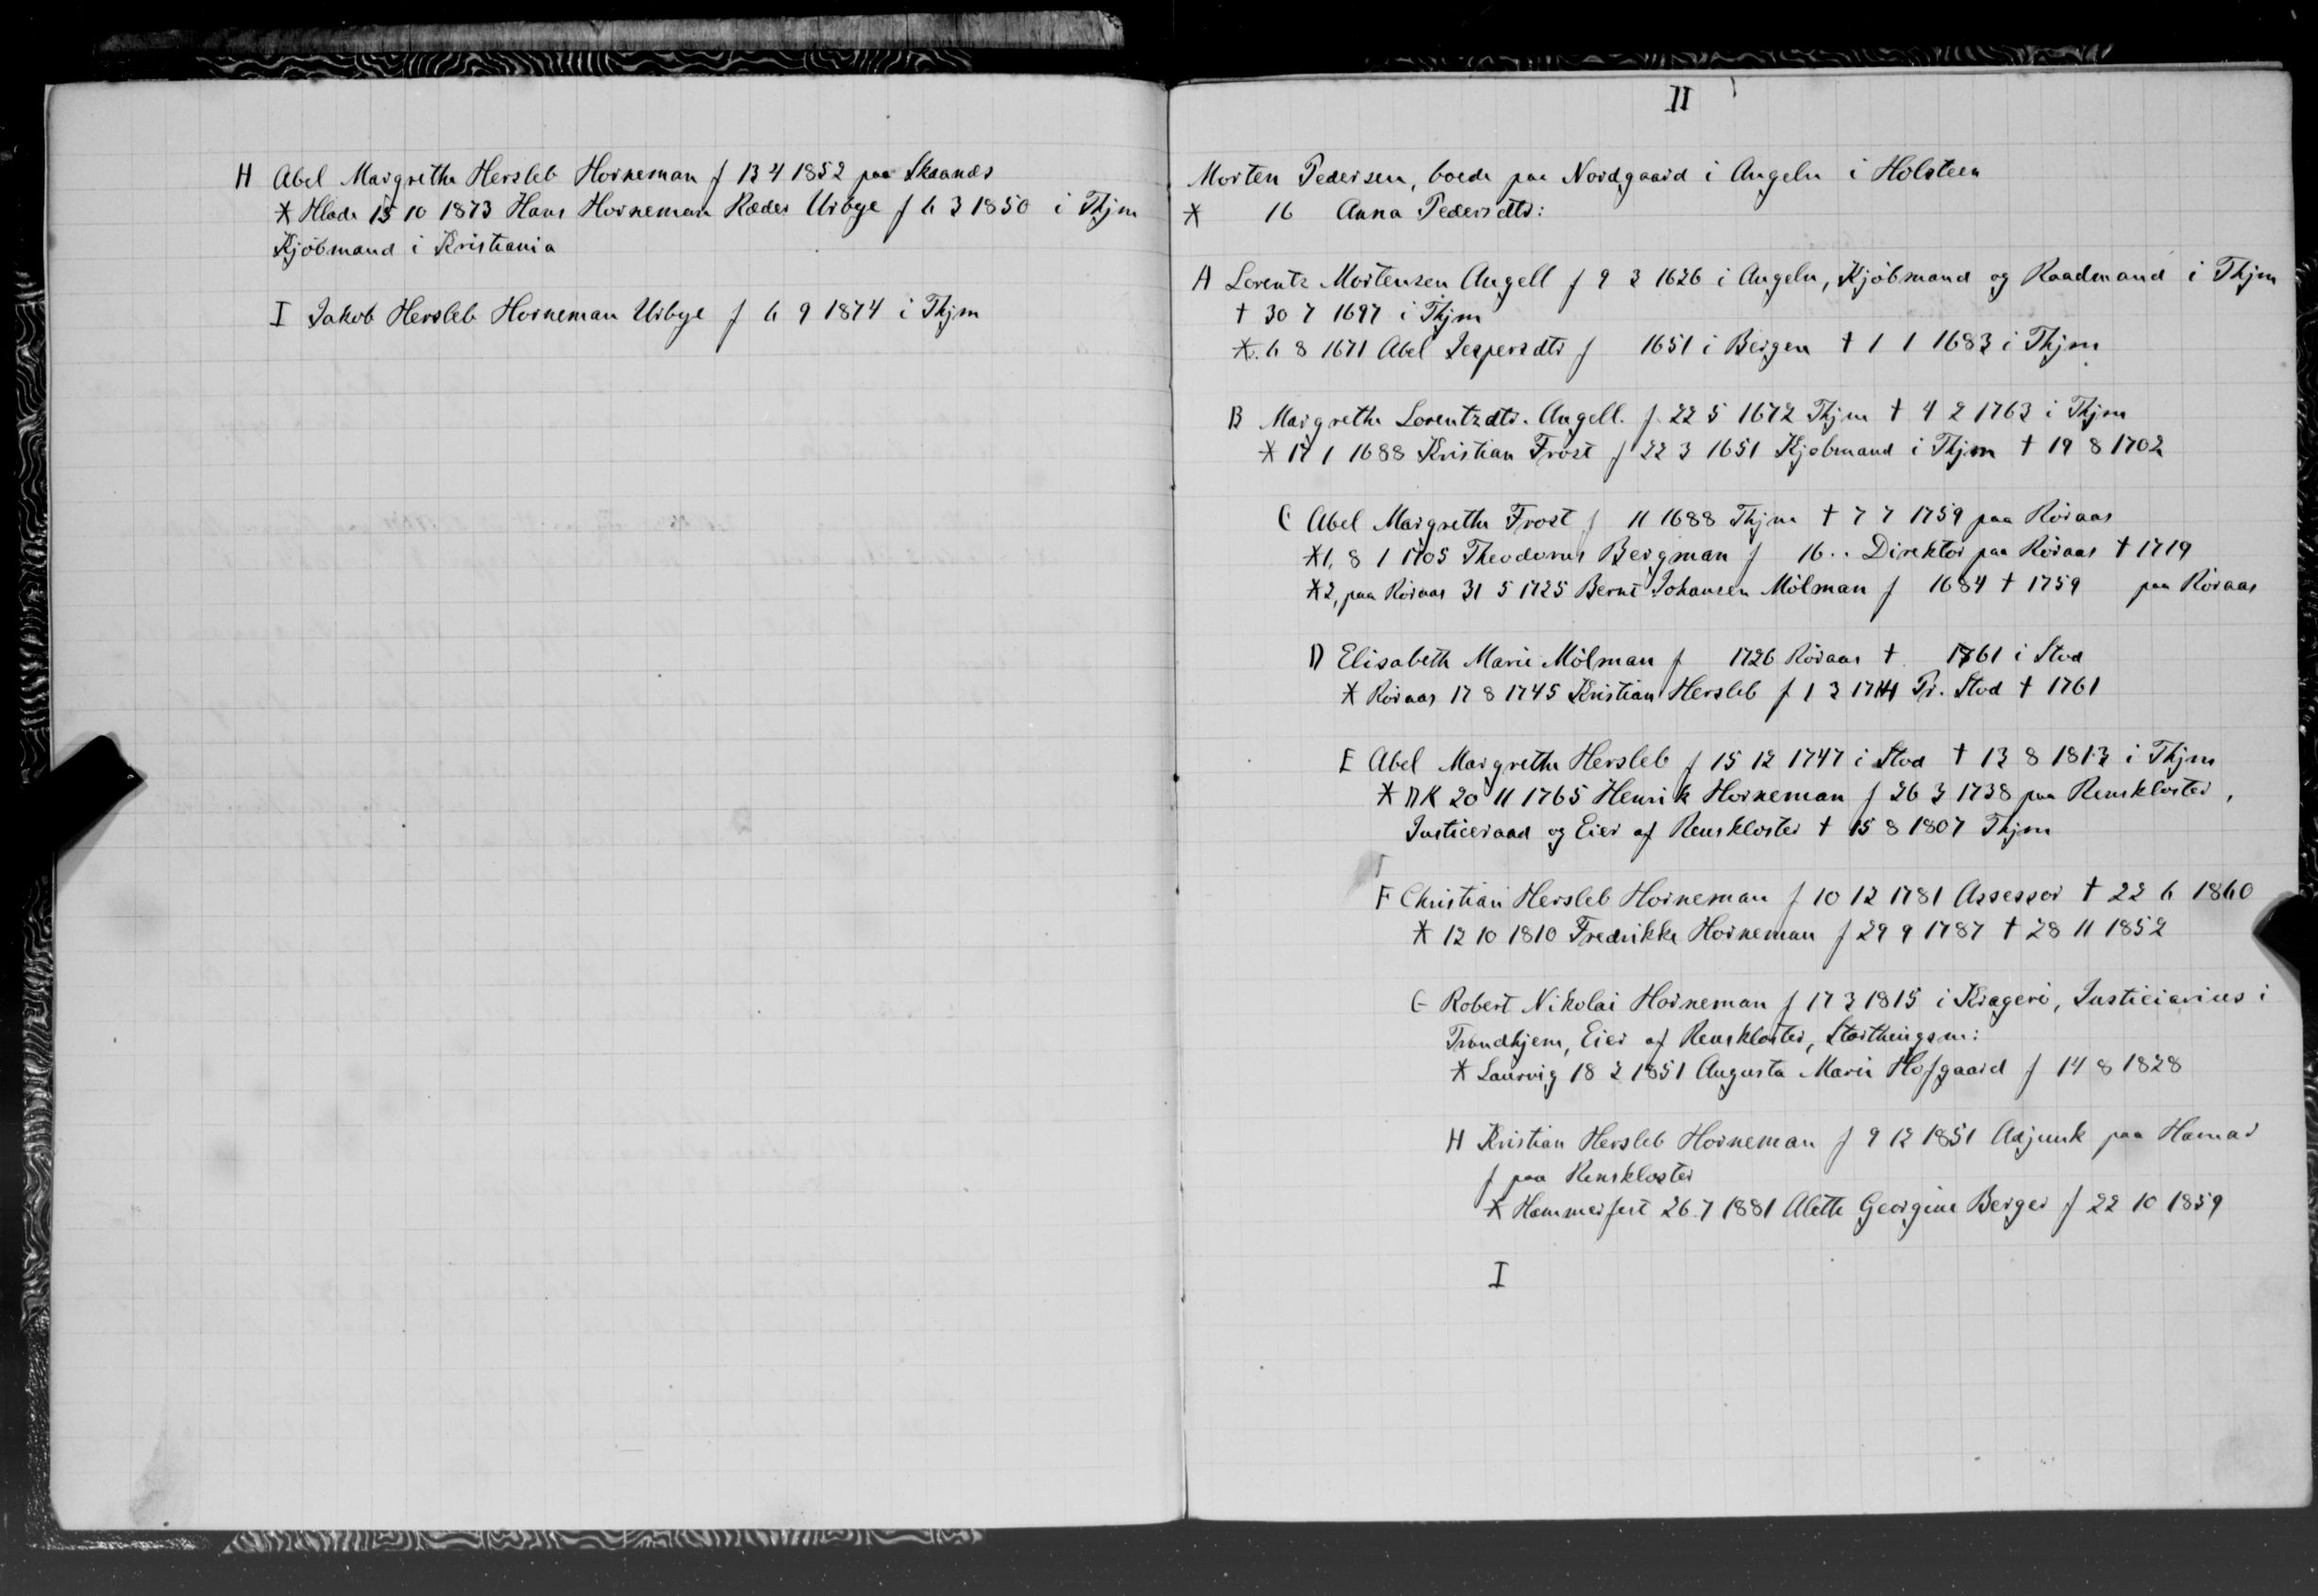 H Abel Margrethe Hersleb Horneman f 13 4 1852 paa Skaanes
* Hlade 15 10 1873 Hans Horneman Ræder Urbye f 6 3 1850 i Thjm
Kjöbmand i Kristiania
I Jakob Hersleb Horneman Urbye f 6 9 1874 i Thjm
II
Morten Pedersen, boede paa Nordgaard i Angeln i Holsteen
* 16 Anna Pedersdtr:
A Lorentz Mortensen Angell f 9 2 1626 i Angeln, Kjöbmand og Raadmand i Thjm
† 30 7 1697 i Thjm
*. 6 8 1671 Abel Jespersdtr f 1651 i Bergen † 1 1 1683 i Thjm
B Margrethe Lorentzdtr. Angell. f 22 5 1672 Thjm † 4 2 1763 i Thjm
* 17 1 1688 Kristian Frost f 22 3 1651 Kjøbmand i Thjm † 19 8 1702
C Abel Margrethe Frost f 11 1688 Thjm † 7 7 1759 paa Röraas
*1, 8 1 1705 Theodorus Bergman f 16.. Direktör paa Röraas † 1719
*2, paa Röraas 31 5 1725 Bernt Johansen Mölman f 1684 † 1759 paa Röraas
D Elisabeth Marie Mölman f 1726 Röraas † 1761 i Stod
* Röraas 17 8 1745 Kristian Hersleb f 1 3 1714 Pr. Stod † 1761
E Abel Margrethe Hersleb f 15 12 1747 i Stod † 13 8 1813 i Thjm
* DK 20 11 1765 Henrik Horneman f 26 3 1738 paa Renskloster,
Justiceraad og Eier af Renskloster † 15 8 1807 Thjm
F Christian Hersleb Horneman f 10 12 1781 Assessor † 22 6 1860
* 12 10 1810 Fredrikke Horneman f 29 9 1787 † 28 11 1852
G Robert Nikolai Horneman f 17 3 1815 i Kragerö, Justiciarius i
Trondhjem, Eier af Renskloster, Storthingsm:
* Laurvig 18 2 1851 Augusta Marie Hofgaard f 14 8 1828
H Kristian Hersleb Horneman f 9 12 1851 Adjunk paa Hamar
f paa Renskloster
* Hammerfest 26.7 1881 Alette Georgine Berger f 22 10 1859
I